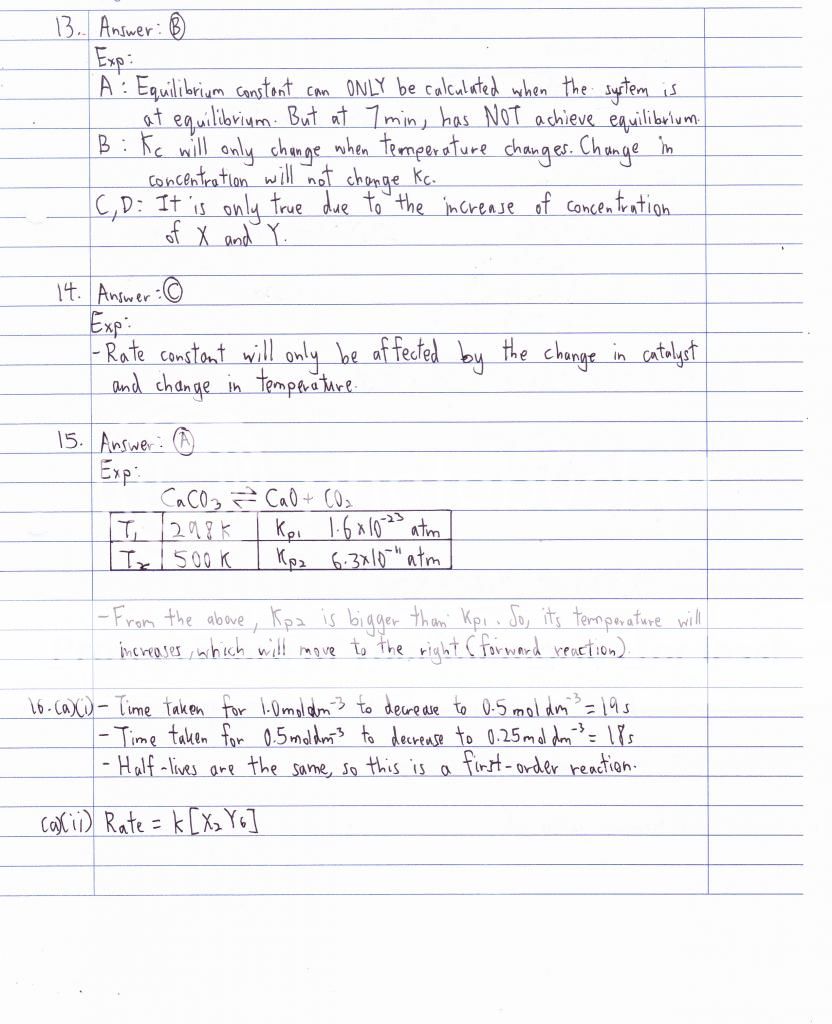 13. Answer: B
Exp:
A: Equilibrium constant can ONLY be calculated when the system is
at equilibrium. But at 7min, has NOT achieve equilibrium.
B: Kc will only change when temperature changes. Change in
concentration will not change Kc.
C,D: It is only true due to the increase of concentration
of X and Y.
14. Answer: C
Exp:
- Rate constant will only be affected by the change in catalyst
and change in temperature.
15. Answer: A
Exp:
CaCO₃ ⇌ CaO + CO₂
T₁ 298K Kp₁ 1.6x10⁻²³ atm
T₂ 500K Kp₂ 6.3x10⁻¹¹ atm
- From the above, Kp₂ is bigger than Kp₁. So, its temperature will
increases, which will move to the right (forward reaction).
16.(a)(i) - Time taken for 1.0moldm⁻³ to decrease to 0.5 mol dm⁻³ = 19s
- Time taken for 0.5moldm⁻³ to decrease to 0.25mol dm⁻³ = 18s
- Half-lives are the same, so this is a first-order reaction.
(a)(ii) Rate = k[X₂Y₆]